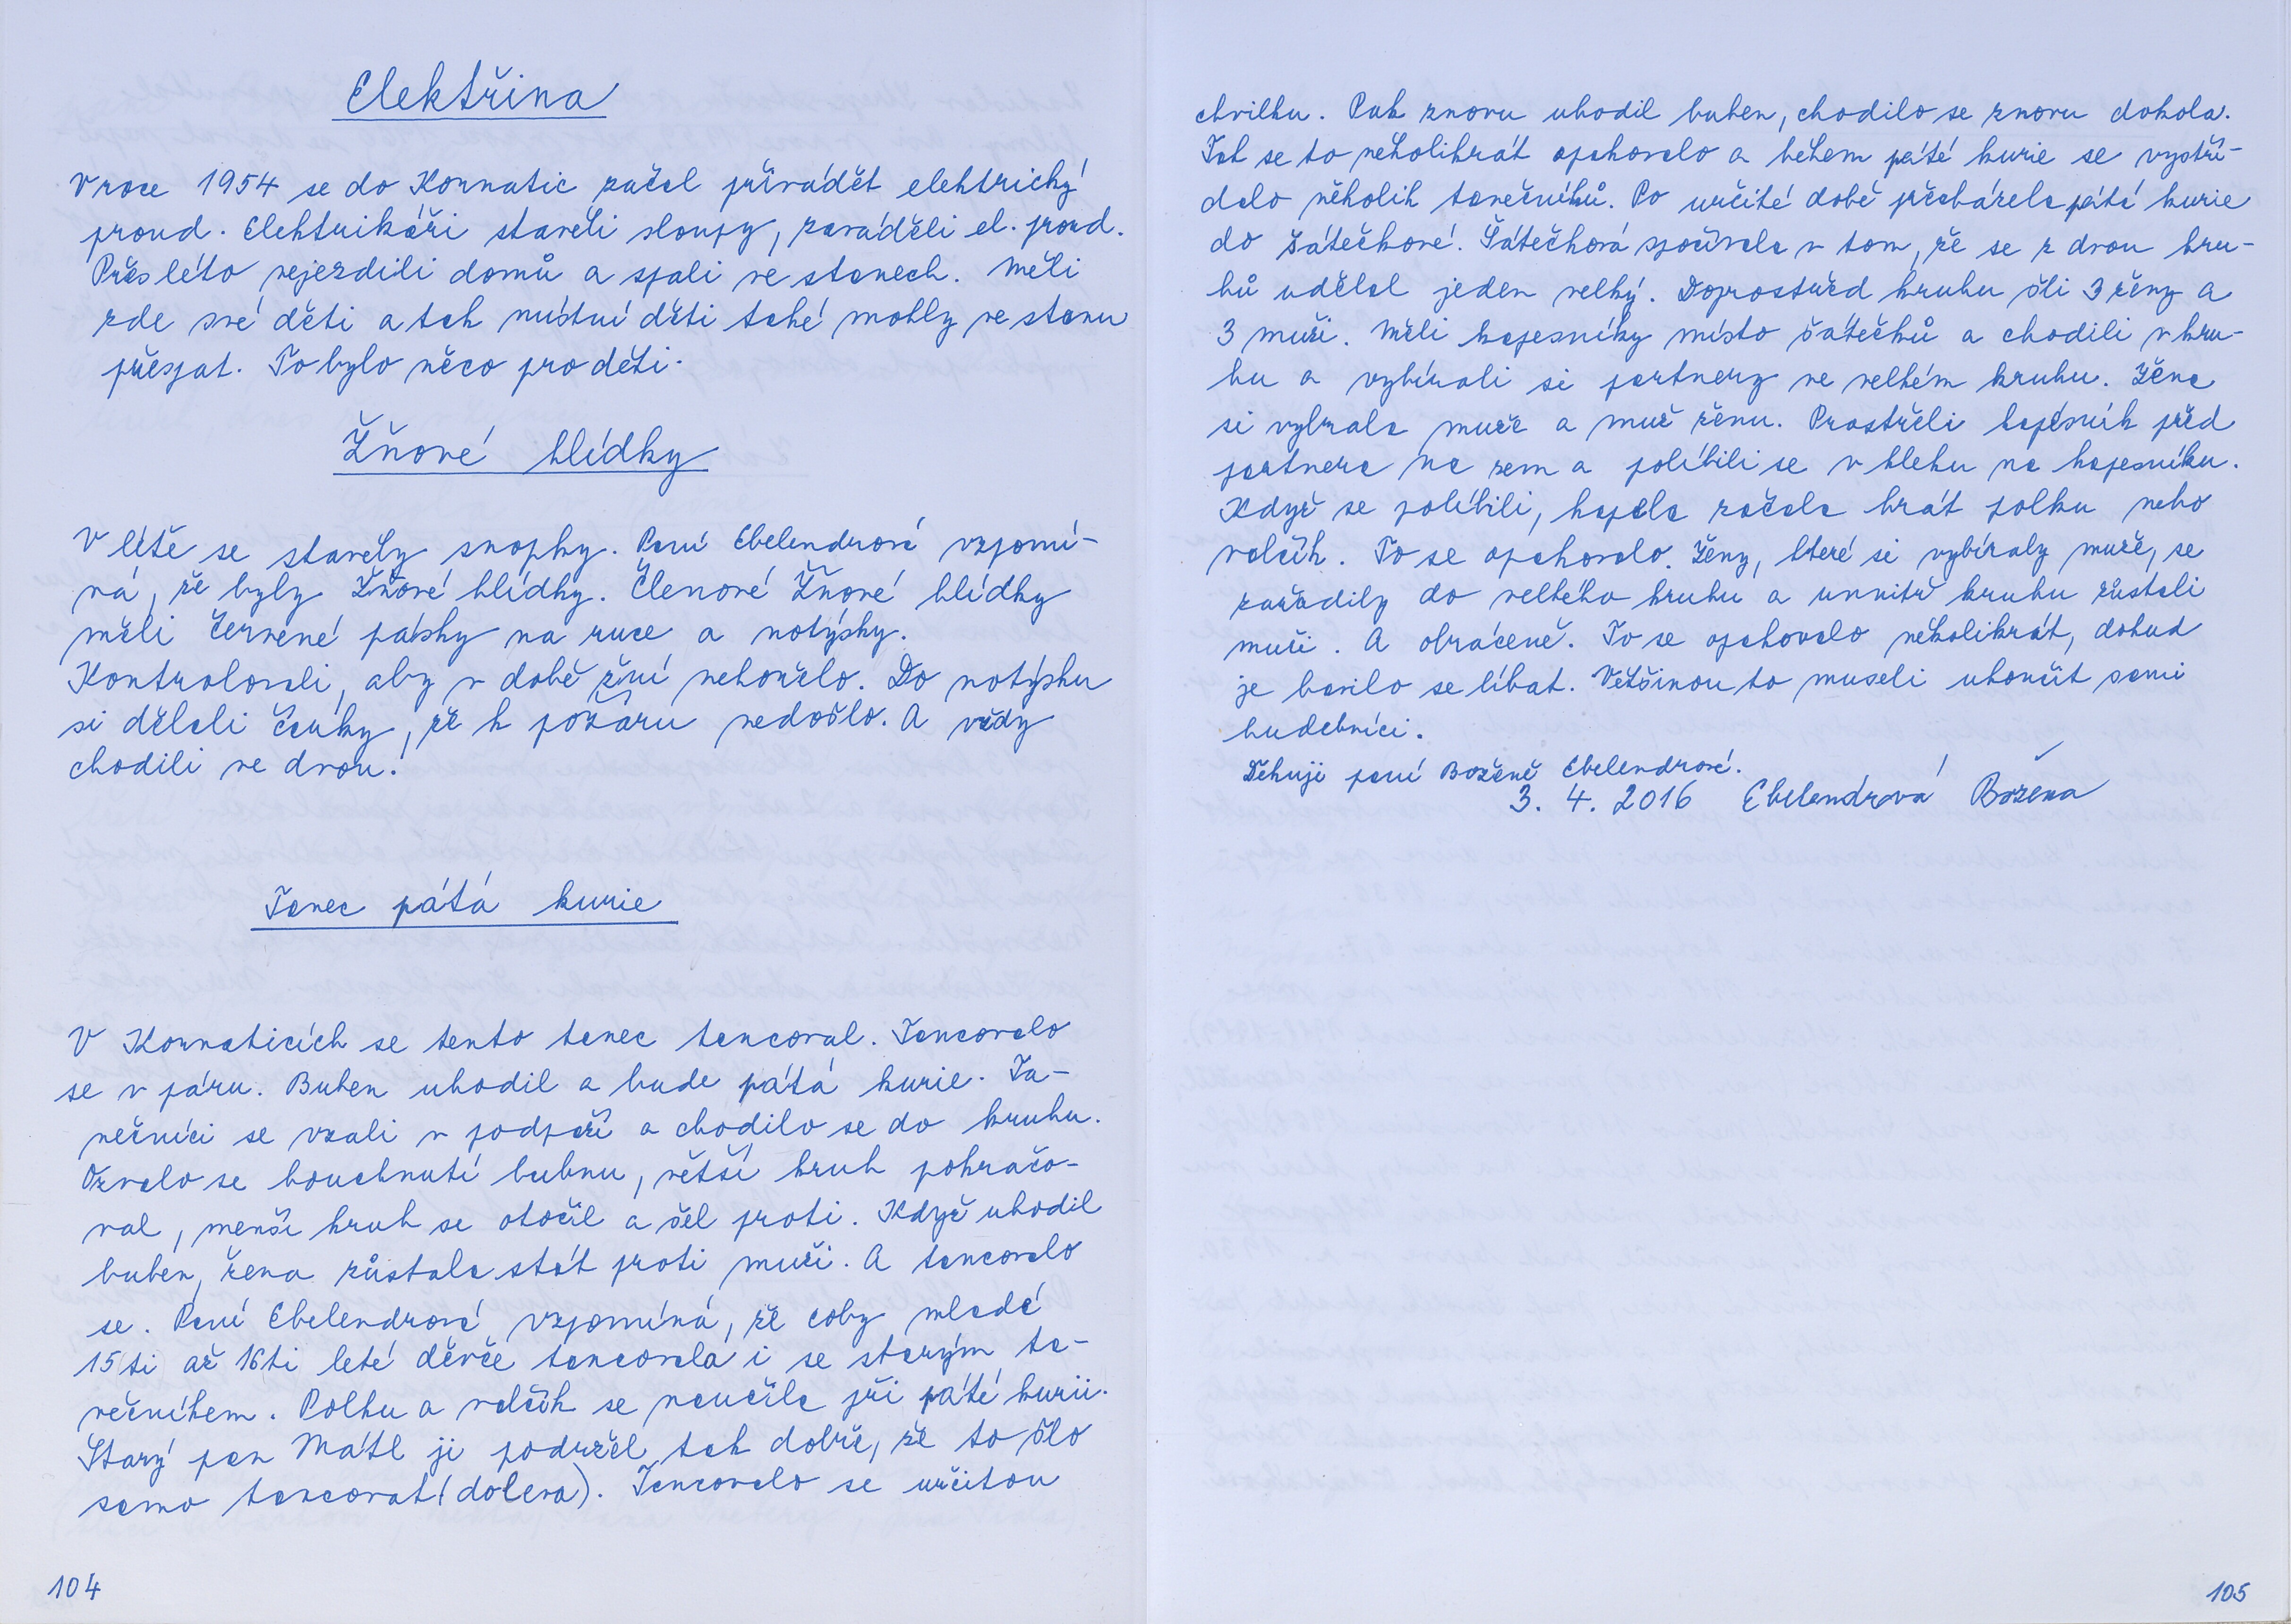 Elektřina
V roce 1954 se do Kornatic začal přivádět elektrický
proud. Elektrikáři stavěli sloupy, zaváděli el. proud.
Přes léto nejezdili domů a spali ve stanech. Měli
zde své děti a tak místní děti také mohly ve stanu
přespat. To bylo něco pro děti.
Žňové hlídky
V létě se stavěly snopky. Paní Ebelendrová vzpomí-
ná, že byly Žňové hlídky. Členové Žňové hlídky
měli červené pásky na ruce a notýsky.
Kontrolovali, aby v době žní nehořelo. Do notýsku
si dělali čárky, že k požáru nedošlo. A vždy
chodili ve dvou.
Tanec pátá kurie
V Kornaticích se tento tanec tancoval. Tancovalo
se v páru. Buben uhodil a bude pátá kurie. Ta-
nečníci se vzali v podpaří a chodilo se do kruhu.
Ozvalo se bouchnutí bubnu, větší kruh pokračo-
val, menší kruh se otočil a šel proti. Když uhodil
buben, žena zůstala stát proti muži. A tancovalo
se. Paní Ebelendrová vzpomíná, že coby mladé
15ti až 16ti leté děvče tancovala i se starým ta-
nečníkem. Polku a valčík se naučila při páté kurii.
Starý pan Mátl ji podržel tak dobře, že to šlo
samo tancovat (doleva). Tancovalo se určitou
104
chvilku. Pak znovu uhodil buben, chodilo se znovu dokola.
Tak se to několikrát opakovalo a během páté kurie se vystří-
dalo několik tanečníků. Po určité době přecházela pátá kurie
do šátečkové. Šátečková spočívala v tom, že se z dvou kru-
hů udělal jeden velký. Doprostřed kruhu šli 3 ženy a
3 muži. Měli kapesníky místo šátečků a chodili v kru-
hu a vybírali si partnery ve velkém kruhu. Žena
si vybrala muže a muž ženu. Prostřeli kapesník před
partnera na zem a políbili se v kleku na kapesníku.
Když se políbili, kapela začala hrát polku nebo
valčík. To se opakovalo. Ženy, které si vybíraly muže, se
zařadily do velkého kruhu a uvnitř kruhu zůstali
muži. A obráceně. To se opakovalo několikrát, dokud
je bavilo se líbat. Většinou to museli ukončit sami
hudebníci.
Děkuji paní Boženě Ebelendrové.
3. 4. 2016 Ebelendrová Božena
105